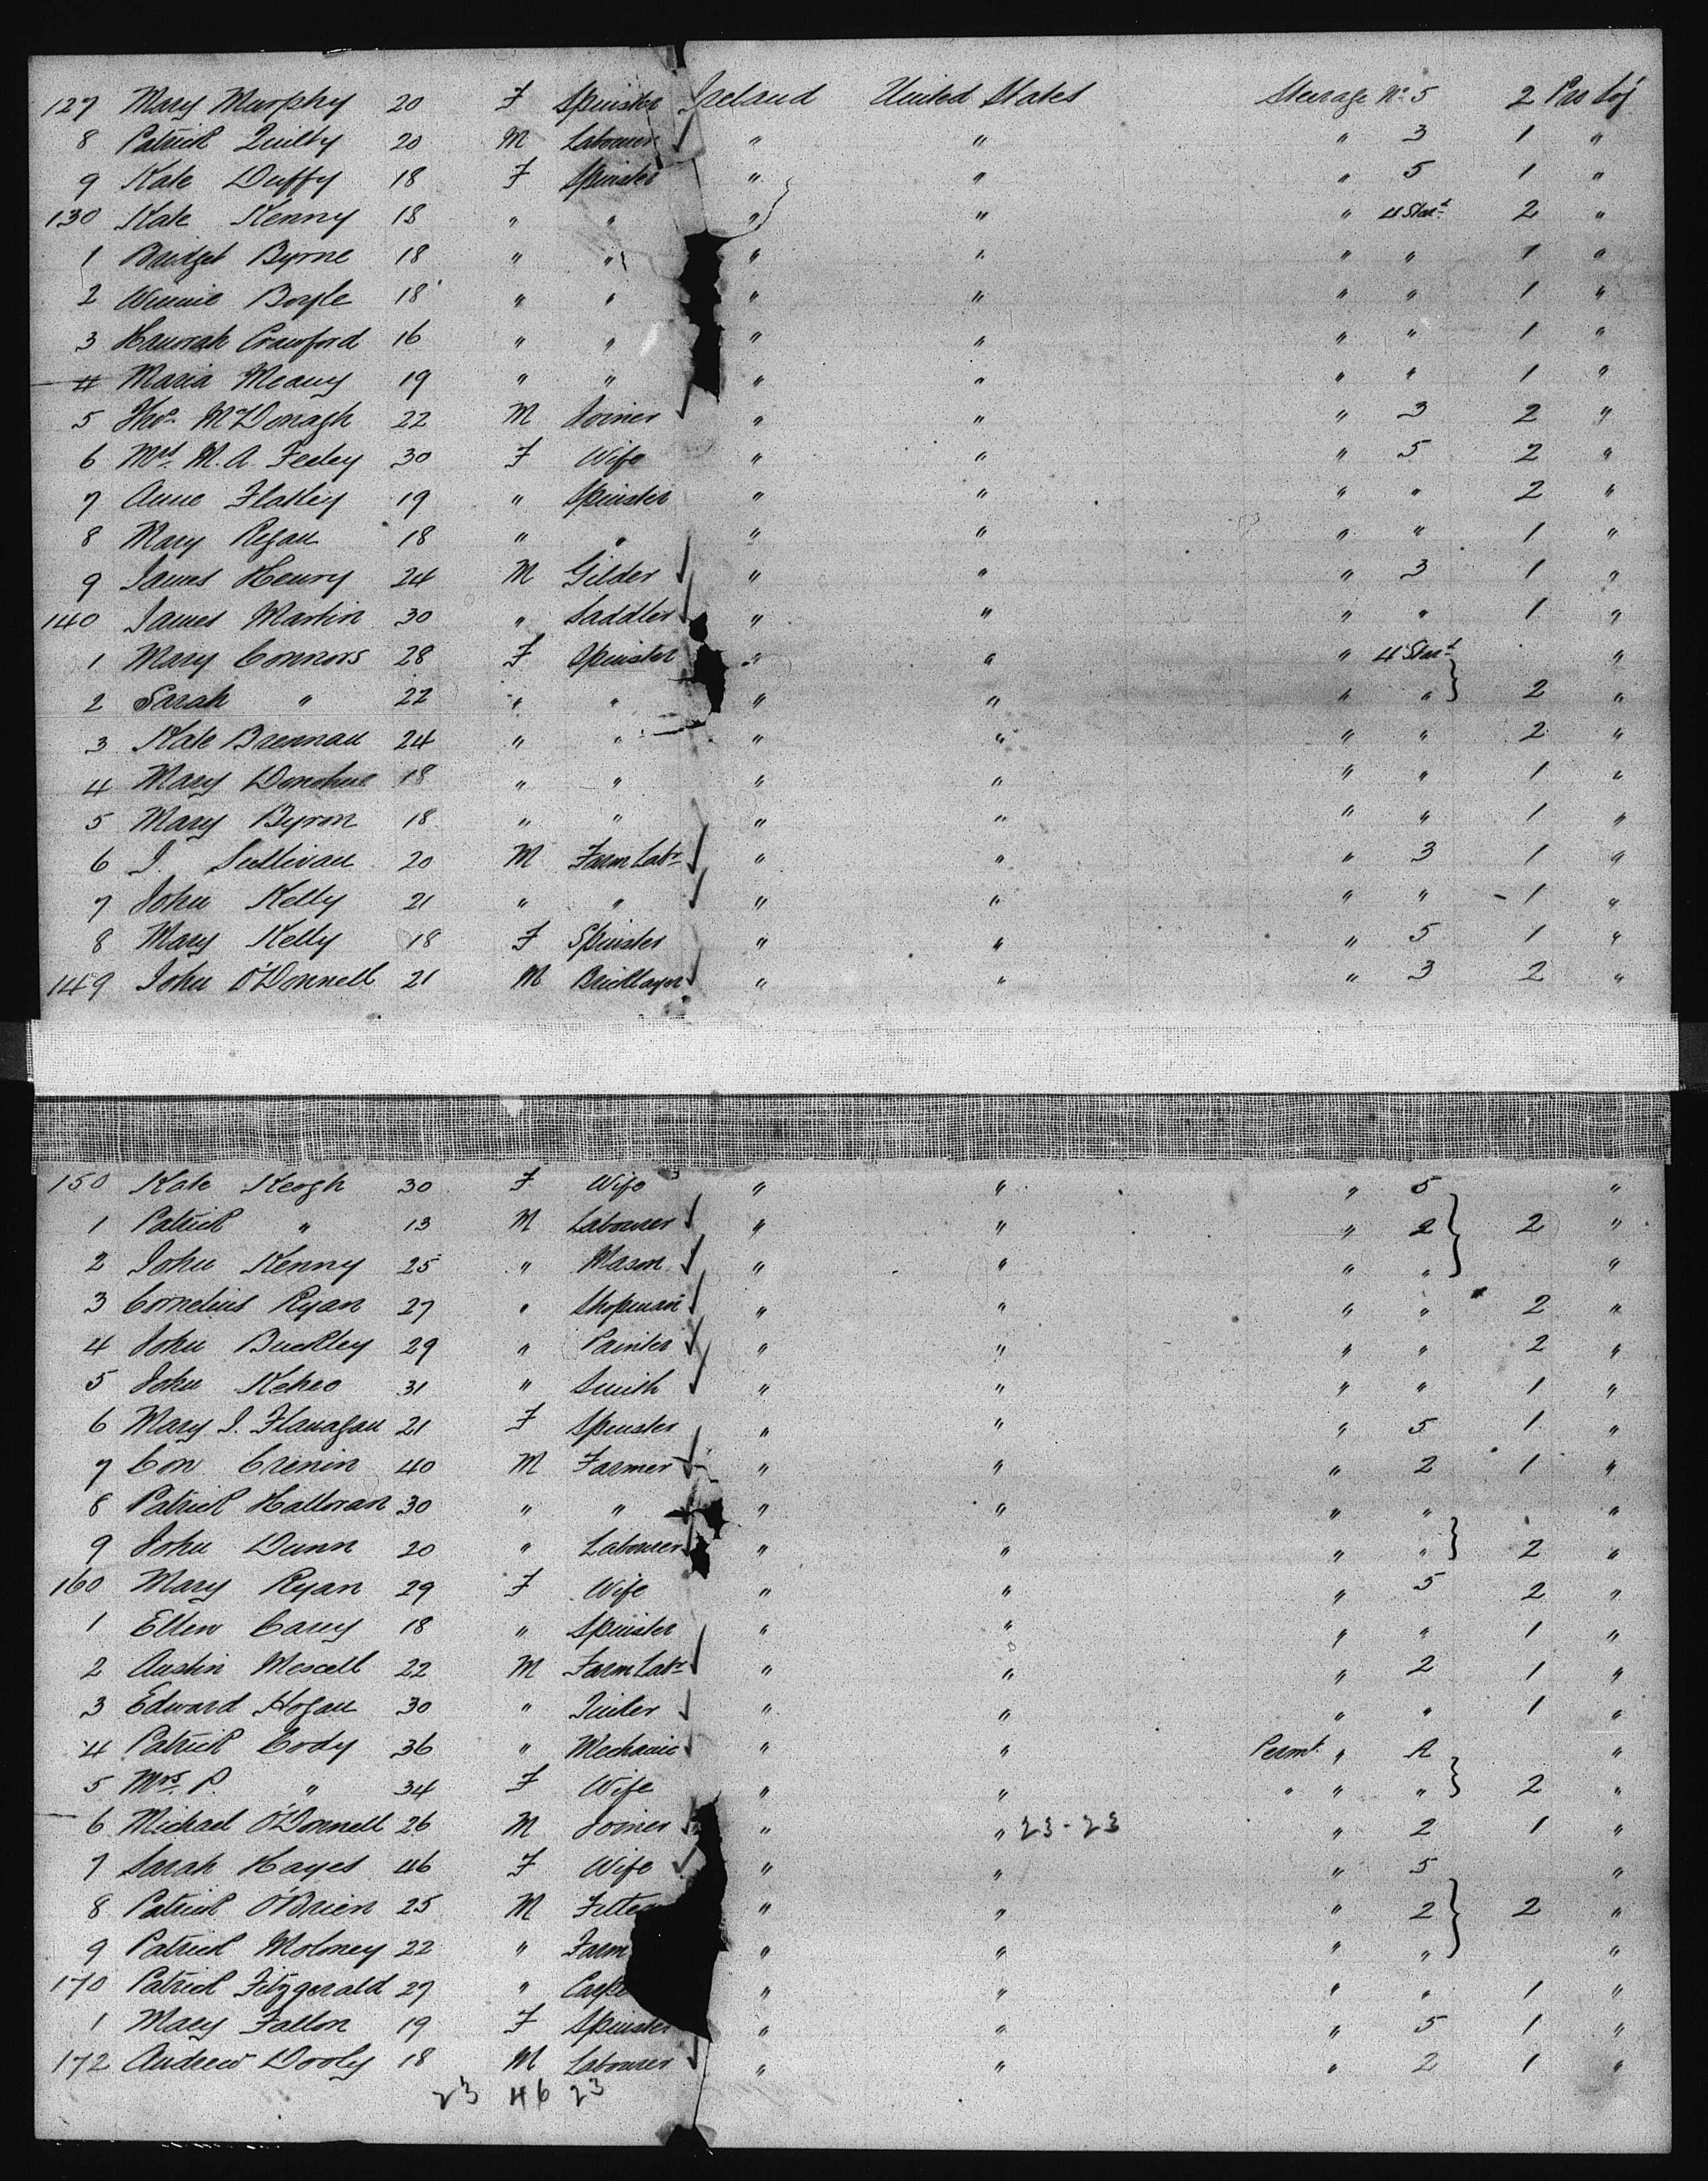 127 Mary Murphy 20 F Spinster Ireland United States Steerage No. 5 2 Pcs Lug
8 Patrick Quilty 20 M Labourer " " " 3 1 "
9 Kate Duffy 18 F Spinster " " " 5 1 "
130 Kate Kenny 18 " " " " " 4 Star.t 2 "
1 Bridget Byrne 18 " " " " " " 1 "
2 Winnie Boyle 18 " " " " " " 1 "
3 Hannah Crawford 16 " " " " " " 1 "
4 Maria Meany 19 " " " " " " 1 "
5 Thos. McDonagh 22 M Joiner " " " 3 2 "
6 Mrs. M. A. Feeley 30 F Wife " " " 5 2 "
7 Anne Flatley 19 " Spinster " " " " 2 "
8 Mary Regan 18 " " " " " " 1 "
9 James Henry 24 M Gilder " " " 3 1 "
140 James Martin 30 " Saddler " " " " 1 "
1 Mary Connors 28 F Spinster " " " 4 Star.t "
2 Sarah " 22 " " " " " " 2 "
3 Kate Brennan 24 " " " " " " 2 "
4 Mary Donohue 18 " " " " " " 1 "
5 Mary Byron 18 " " " " " " 1 "
6 J. Sullivan 20 M Farm Labr " " " 3 1 "
7 John Kelly 21 " " " " " " 1 "
8 Mary Kelly 18 F Spinster " " " 5 1 "
149 John O'Donnell 21 M Bricklayer " " " 3 2 "
150 Kate Keogh 30 F Wife " " " 5 "
1 Patrick " 13 M Labourer " " " 2 2 "
2 John Kenny 25 " Mason " " " " "
3 Cornelius Ryan 27 " Shopman " " " " 2 "
4 John Buckley 29 " Painter " " " " 2 "
5 John Keheo 31 " Smith " " " " 1 "
6 Mary J. Flanagan 21 F Spinster " " " 5 1 "
7 Con Crenin 40 M Farmer " " " 2 1 "
8 Patrick Halloran 30 " " " " " " "
9 John Dunn 20 " Labourer " " " " 2 "
160 Mary Ryan 29 F Wife " " " 5 2 "
1 Ellen Carey 18 " Spinster " " " " 1 "
2 Austin Mescell 22 M Farm Labr " " " 2 1 "
3 Edward Hogan 30 " " " " " 1 "
4 Patrick Cody 36 " Mechanic " " Permt. " A "
5 Mrs. P. " 34 F Wife " " " " " 2 "
6 Michael O'Donnell 26 M Joiner " " 23-23 " 2 1 "
7 Sarah Hayes 46 F Wife " " " 5 "
8 Patrick O'Brien 25 M Fitter " " " 2 2 "
9 Patrick Moloney 22 " Farm " " " " "
170 Patrick Fitzgerald 27 " " " " " 1 "
1 Mary Fallon 19 F Spinster " " " 5 1 "
172 Andrew Dooly 18 M Labourer " " " 2 1 "
23 46 23